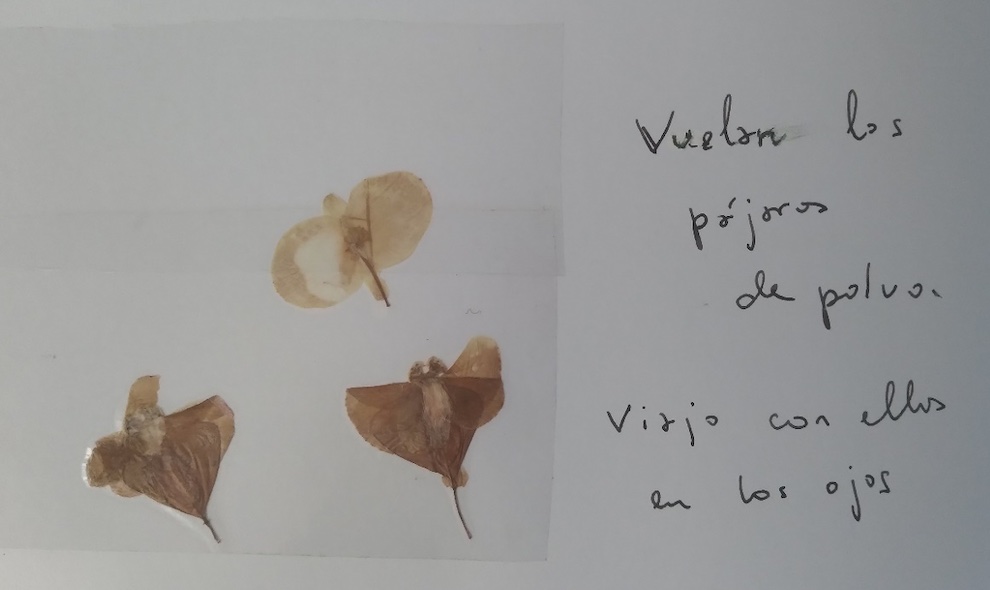 Vuelan los
pájaros
de polvo.
Viajo con ellos
en los ojos